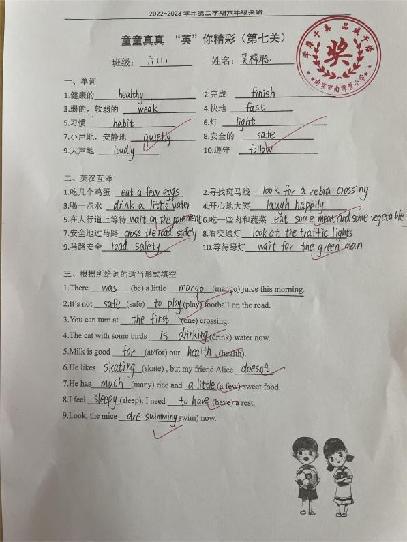 2022-2023学年第二学期六年级英语
童童真真 “英”你精彩（第七关）
班级： 姓名：
奖
一、单词
1.健康的 healthy 2.完成 finish
3.弱的，软弱的 weak 4.快地 fast
5.习惯 habit 6.灯 light
7.小声地，安静地 quietly 8.安全的 safe
9.大声地 loudly 10.遵守 follow
二、英汉互译
1.吃几个鸡蛋 eat a few eggs 2.寻找斑马线 look for a zebra crossing
3.喝一点水 drink a little water 4.开心地大笑 laugh happily
5.在人行道上等待 wait on the pavement 6.吃一些肉和蔬菜 eat some meat and some vegetables
7.安全地过马路 cross the road safely 8.看交通灯 look at the traffic lights
9.马路安全 road safety 10.等待绿灯 wait for the green man
三、根据所给词的适当形式填空
1.There was (be) a little mango (mango) juice this morning.
2.It's not safe (safe) to play (play) football on the road.
3.You can turn at the first (one) crossing.
4.The cat with some birds is drinking (drink) water now.
5.Milk is good for (at/for) our health (health).
6.He likes skating (skate), but my friend Alice doesn't
7.He has much (many) rice and a little (a few) sweet food.
8.I feel sleepy (sleep), I need to have (have) a rest.
9.Look, the mice are swimming (swim) now.